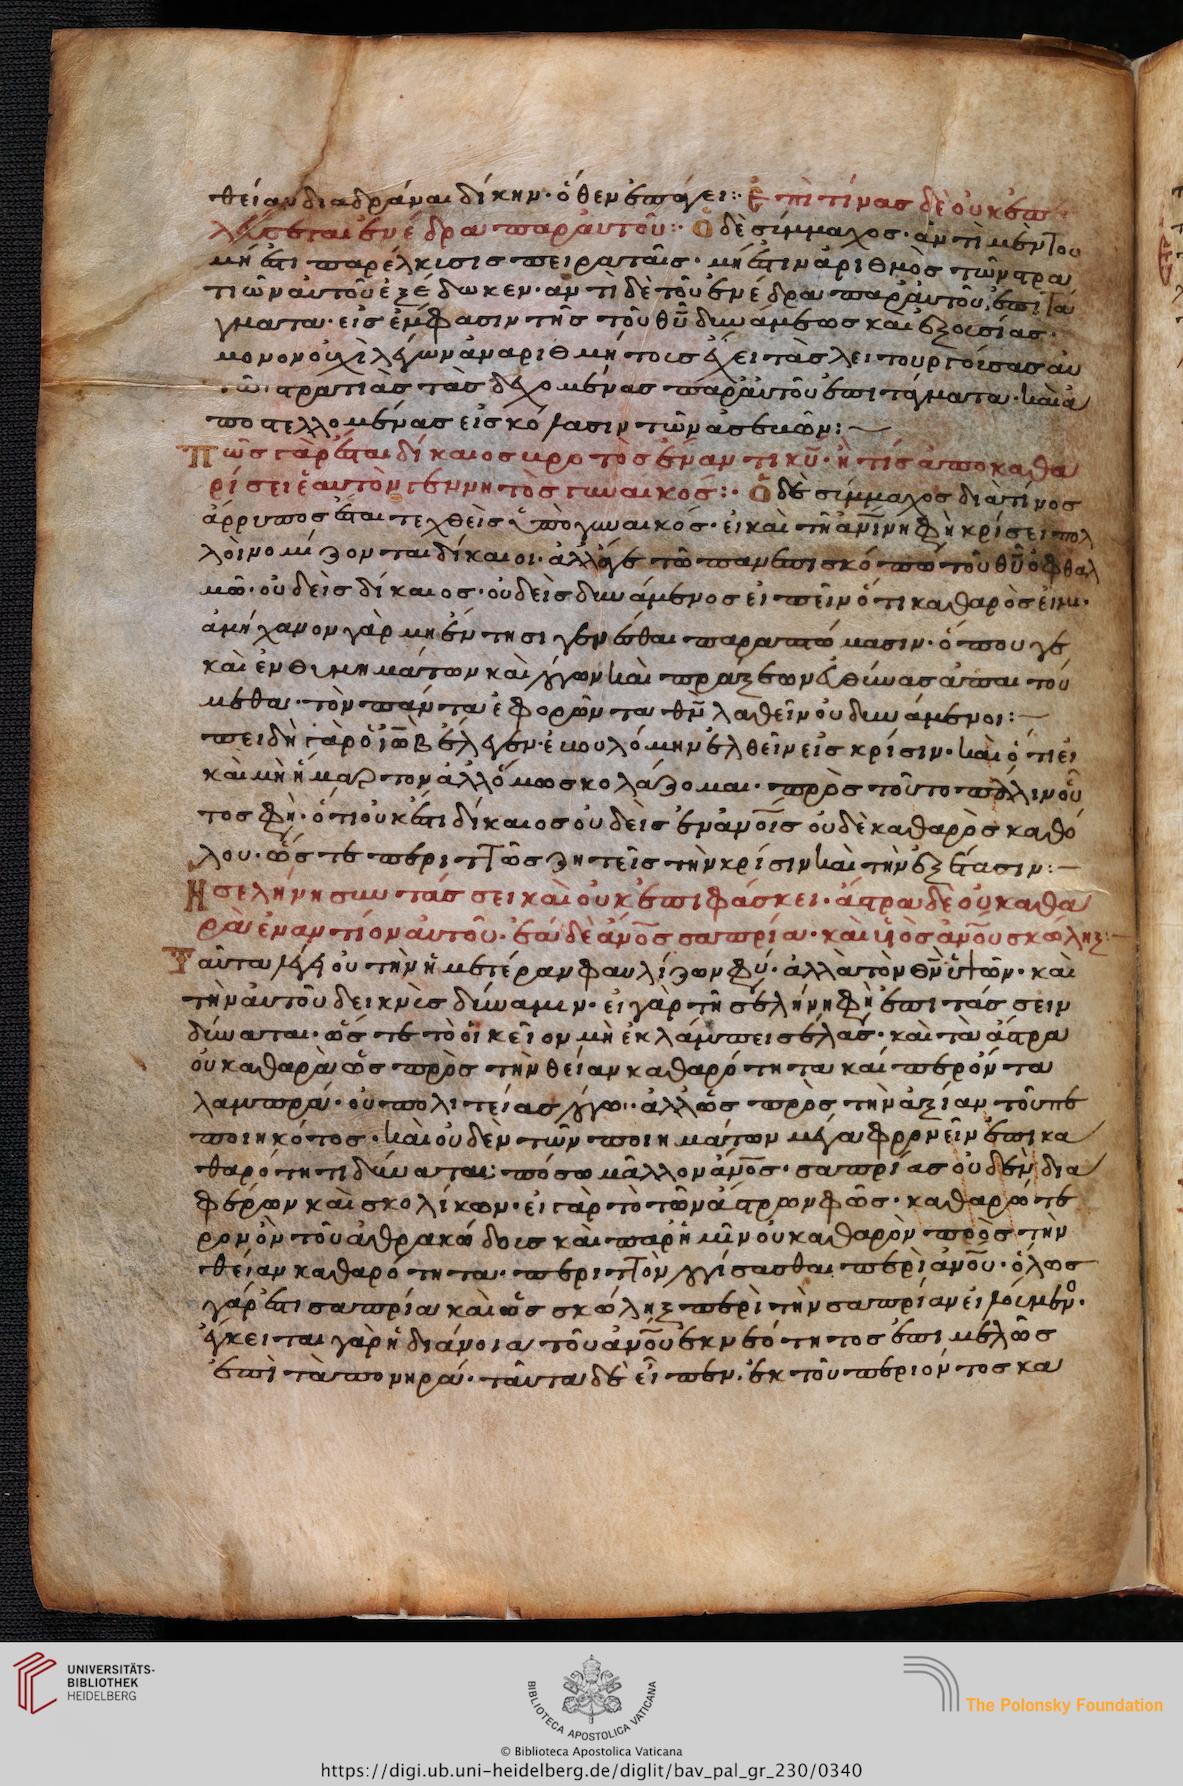 θείαν διαδράναι δίκην· ὅθεν ἐπάγει: ἐπὶ τίνας δὲ οὐκ ἐπε
λεύσεται ἔνεδρα παρ' αὐτοῦ: Ὁ δὲ σύμμαχος· ἀντὶ μὲν τοῦ
μή ἐστι παρέλκυσις πειραταῖς· μή ἐστιν ἀριθμὸς τῶν στρα
τιῶν αὐτοῦ ἐξέδωκεν· ἀντὶ δὲ τοῦ ἔνεδρα παρ' αὐτοῦ, ἐπιτά
γματα· εἰς ἔμφασιν τῆς τοῦ θυ δυνάμεως καὶ ἐξουσίας·
μονονουχὶ λέγων ἀναριθμήτους ἔχει τὰς λειτουργούσας αὐ
τῶ στρατιὰς τὰς δεχομένας παρ' αὐτοῦ ἐπιτάγματα· καὶ ἀ
ποστελλομένας εἰς κόλασιν τῶν ἀσεβῶν:
Πῶς γάρ ἐσται δίκαιος βροτὸς ἐναντι κυ· ἢ τίς ἀποκαθα
ρίσει ἑαυτὸν γεννητὸς γυναικός: Ὁ δὲ σύμμαχος διὰ τίνος
ἄρρυπος ἔσται τεχθεὶς ὑπὸ γυναικός· εἰ καὶ τῆ ἀνίνη φὴ κρίσει πολ
λοὶ νομίζονται δίκαιοι· ἀλλ' οὔγε τῶ πανεπισκόπω τοῦ θυ ὀφθαλ
μῶ· οὐδεὶς δίκαιος· οὐδεὶς δυνάμενος εἰπεῖν ὅτι καθαρὸς εἰμι·
ἀμήχανον γὰρ μὴ ἔν τισι γενέσθαι παραπτώμασιν· ὅπου γε
καὶ ἐνθυμημάτων καὶ λόγων καὶ πράξεων εὐθύνας ἀπαιτού
μεθα· τὸν πάντα ἐφορῶντα θν λαθεῖν οὐ δυνάμενοι:
πειδὴ γὰρ ὁ ἰὼβ ἔλεγεν· ἐβουλόμην ἐλθεῖν εἰς κρίσιν· καὶ ὅτι εἰ
καὶ μὴ ἥμαρτον ἀλλ' ὅμως κολάζομαι· πρὸς τοῦτο πάλιν οὗ
τος φὴ· ὅτι οὐκ ἔστι δίκαιος οὐδεὶς ἐν ἀνοις οὐδὲ καθαρὸς καθό
λου· ὥστε περιττῶς ζητεῖς τὴν κρίσιν καὶ τὴν ἐξέτασιν:
Ἡ σελήνη συντάσσει καὶ οὐκ ἐπιφάσκει· ἄστρα δὲ οὐ καθα
ρὰ ἐναντίον αὐτοῦ· ἔα δὲ ἀνος σαπρία· καὶ υἱὸς ἀνου σκώληξ:
Ταῦτα λέγει οὐ τὴν ἡμετέραν φαυλίζων φύ· ἀλλὰ τὸν θν ὑψῶν· καὶ
τὴν αὐτοῦ δεικνὺς δύναμιν· εἰ γὰρ τῆ σελήνη φὴ ἐπιτάσσειν
δύναται· ὥστε τὸ οἰκεῖον μὴ ἐκλάμπει σέλας· καὶ τὰ ἄστρα
οὐ καθαρὰ ὡς πρὸς τὴν θείαν καθαρότητα καίπερ ὄντα
λαμπρά· οὐ πολιτείας λόγω· ἀλλ' ὡς πρὸς τὴν ἀξίαν τοῦ πε
ποιηκότος· καὶ οὐδὲν τῶν ποιημάτων μέγα φρονεῖν ἐπὶ κα
θαρότητι δύναται· πόσω μᾶλλον ἀνος· σαπρίας οὐδὲν δια
φέρων καὶ σκολίκων· εἰ γὰρ τὸ τῶν ἄστρων φῶς· καθαρώτε
ρον ὂν τοῦ ἀθρακώδους καὶ παρ' ἡμῖν οὐ καθαρὸν πρὸς τὴν
θείαν καθαρότητα· περιττὸν λογίσασθαι περὶ ἀνου· ὅλως
γάρ ἐστι σαπρία καὶ ὡς σκώληξ περὶ τὴν σαπρίαν εἰλούμενος·
ἔγκειται γὰρ ἡ διάνοια τοῦ ἀνου ἐκ νεότητος ἐπιμελῶς
ἐπὶ τὰ πονηρά· ταῦτα δὲ εἶπεν· ἐκ τοῦ περιόντος κα
UNIVERSITÄTS-
BIBLIOTHEK
HEIDELBERG
BIBLIOTECA APOSTOLICA VATICANA
The Polonsky Foundation
© Biblioteca Apostolica Vaticana
https://digi.ub.uni-heidelberg.de/diglit/bav_pal_gr_230/0340